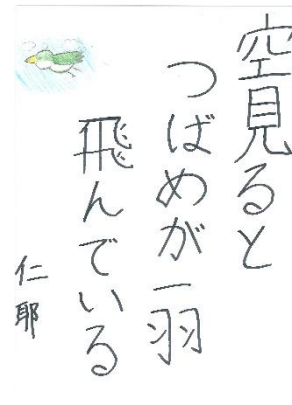 空見ると
つばめが一羽
飛んでいる
仁耶